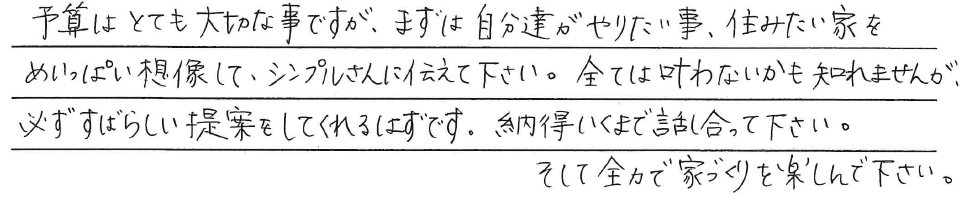 予算はとても大切な事ですが、まずは自分達がやりたい事、住みたい家を
めいっぱい想像して、シンプルさんに伝えて下さい。全ては叶わないかも知れませんが、
必ずすばらしい提案をしてくれるはずです。納得いくまで話し合って下さい。
そして全力で家づくりを楽しんで下さい。